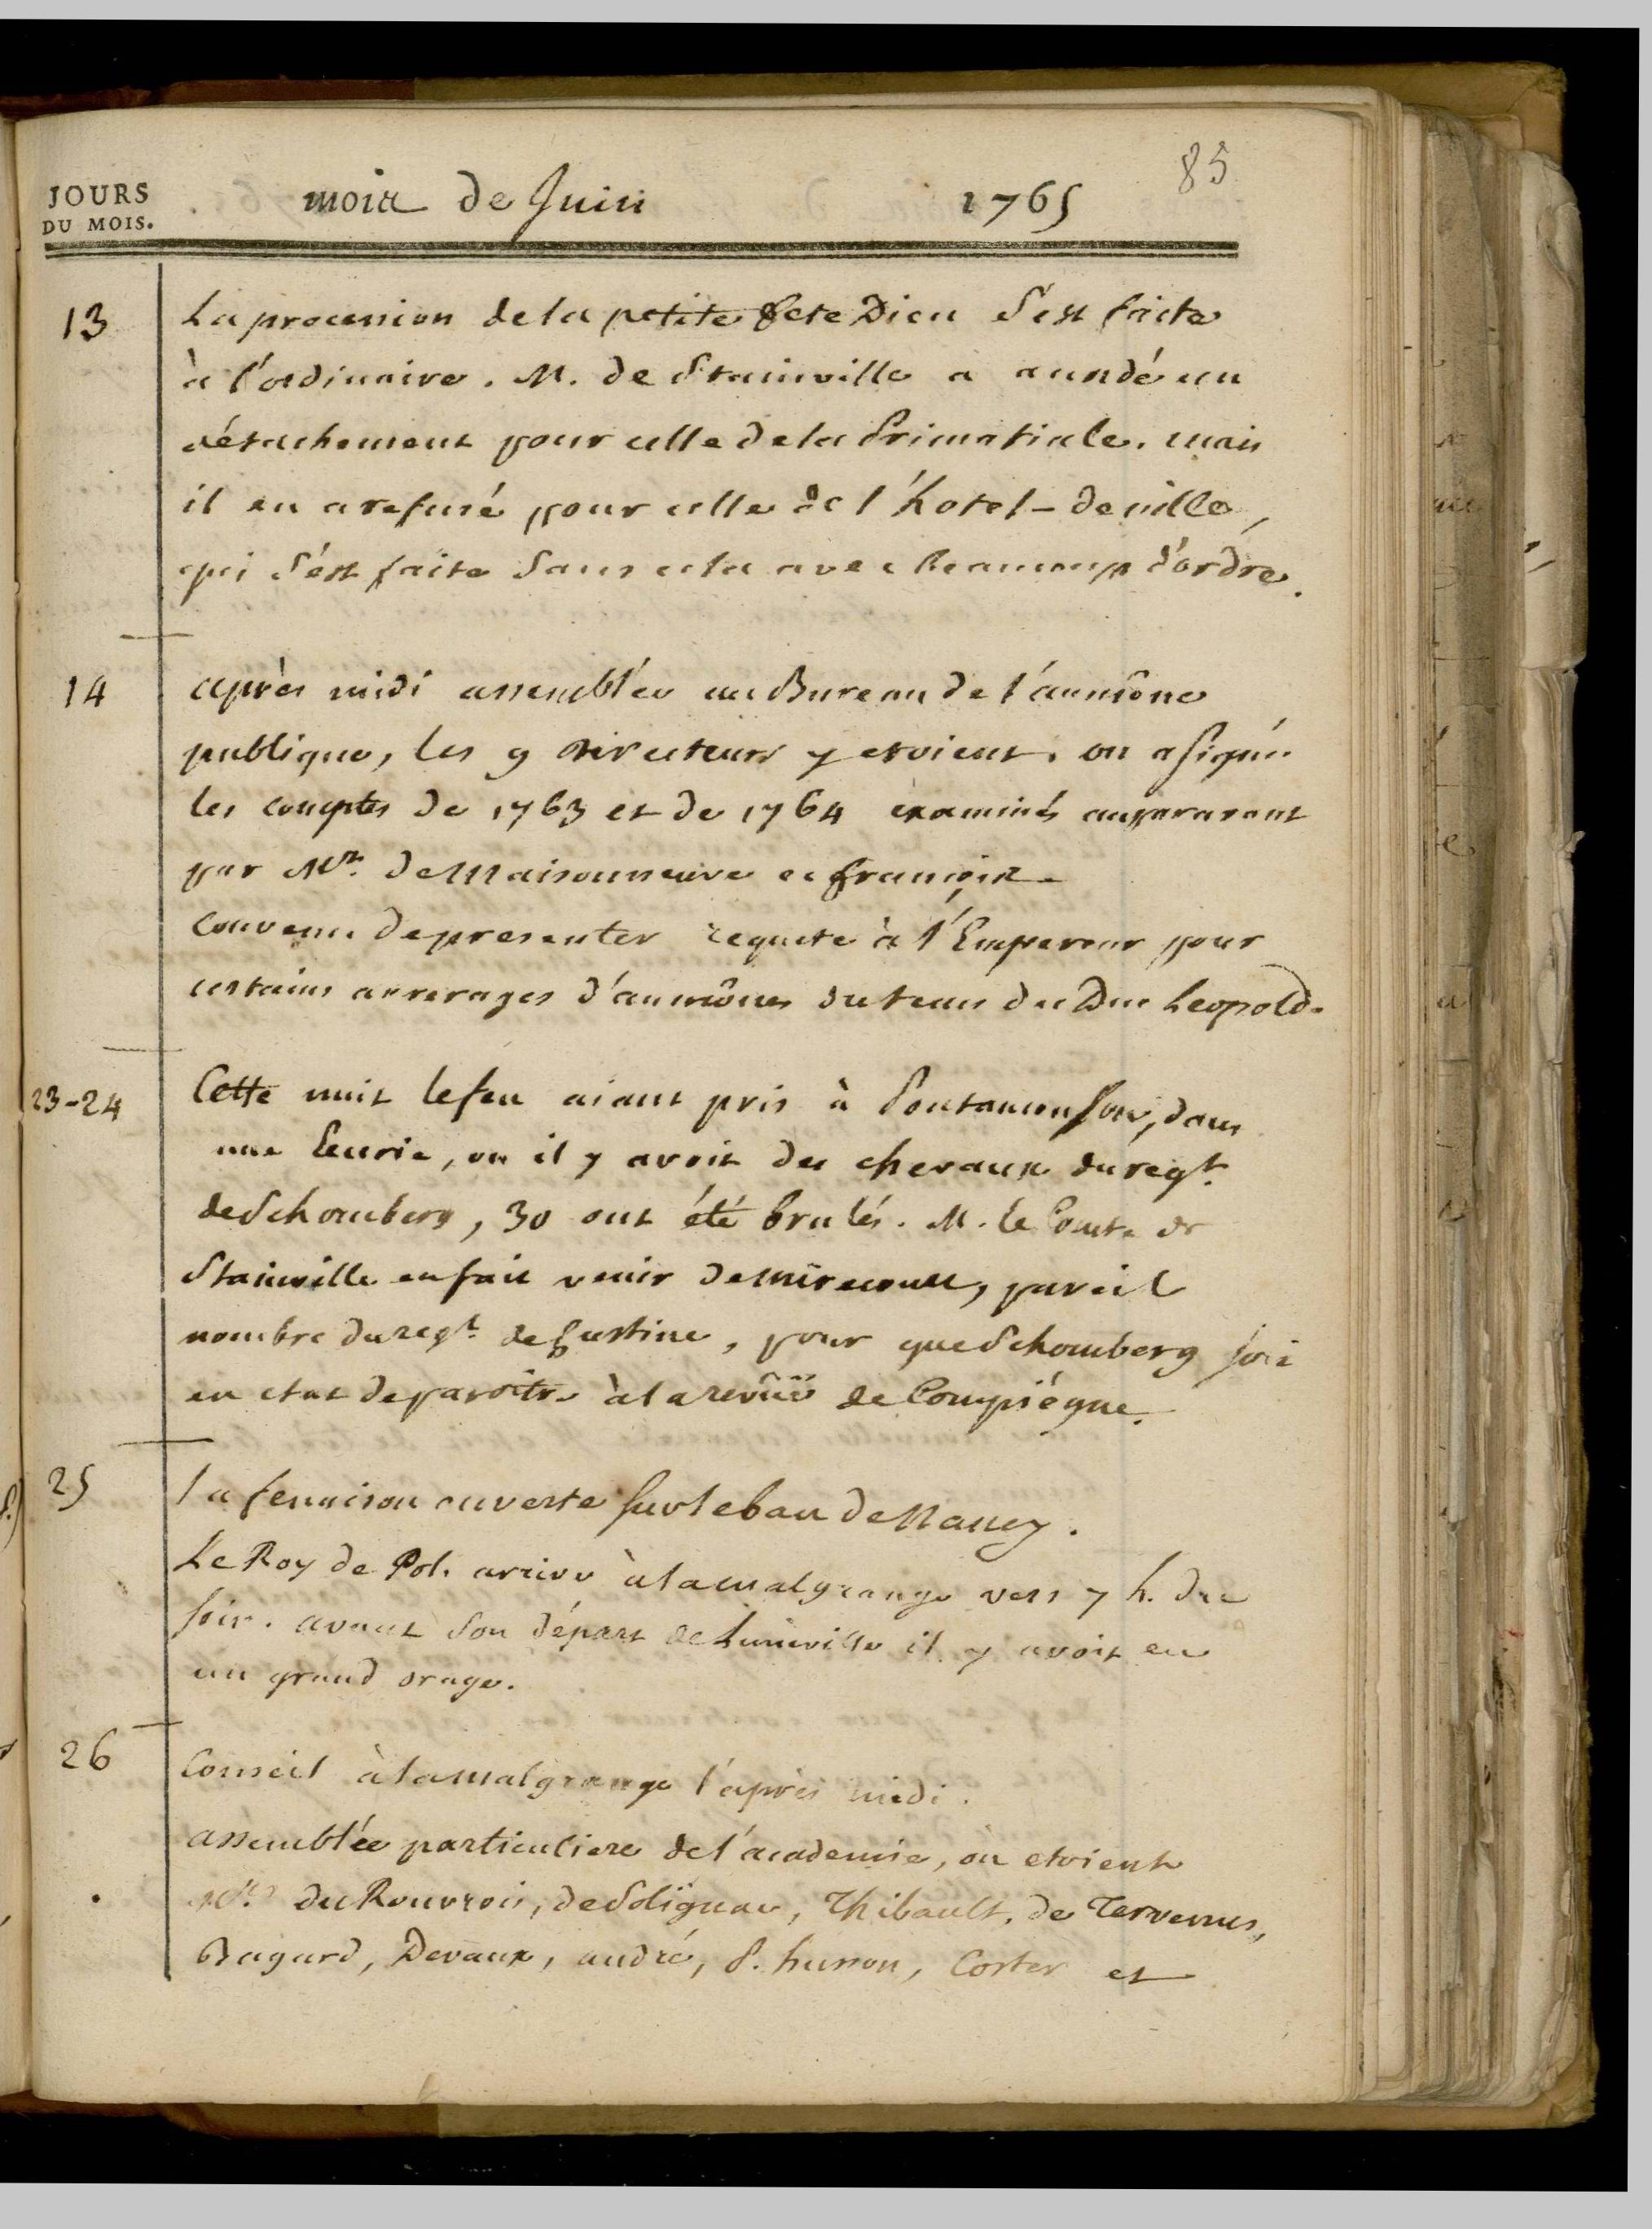 85
JOURS
DU MOIS.
mois de Juin 1765
13
La procession de la petite fete Dieu s'est faite
à l'ordinaire. M. de Stainville a accordé un
détachement pour celle de la Primatiale. mais
il en a refusé pour celle de l'hotel-de ville,
qui s'est faite sans cela avec beaucoup d'ordre.
14
après midi assemblée au Bureau de l'aumône
publique, les 9 Directeurs y etoient. on a signé
les comptes de 1763 et de 1764 examinés auparavant
par Mrs. de Maisonneuve et françois.
convenu de presenter requete à l'Empereur pour
certains arrerages d'aumônes du tems du Duc Leopold.
23-24
Cette nuit le feu aiant pris à Pontamousson, dans
une Ecurie, ou il y avoit des chevaux du regt.
de Schomberg, 30 ont été brulés. M. le Comte de
Stainville en fait venir de mirecourt, pareil
nombre du regt. de Custine, pour que Schomberg soit
en etat de paroitre à la revüe de Compiégne.
25
la fenaison ouverte sur le ban de Nancy.
Le Roy de Pol. arrive à la malgrange vers 7 h. du
soir. avant son départ de Luneville il y avoit eu
un grand orage.
26
Conseil à la malgrange l'après midi.
assemblée particuliere de l'academie, où etoient
Mrs. du Rouvrois, de Solignac, Thibault, de Tervenus,
Bagard, Devaux, andré, P. husson, Coster et